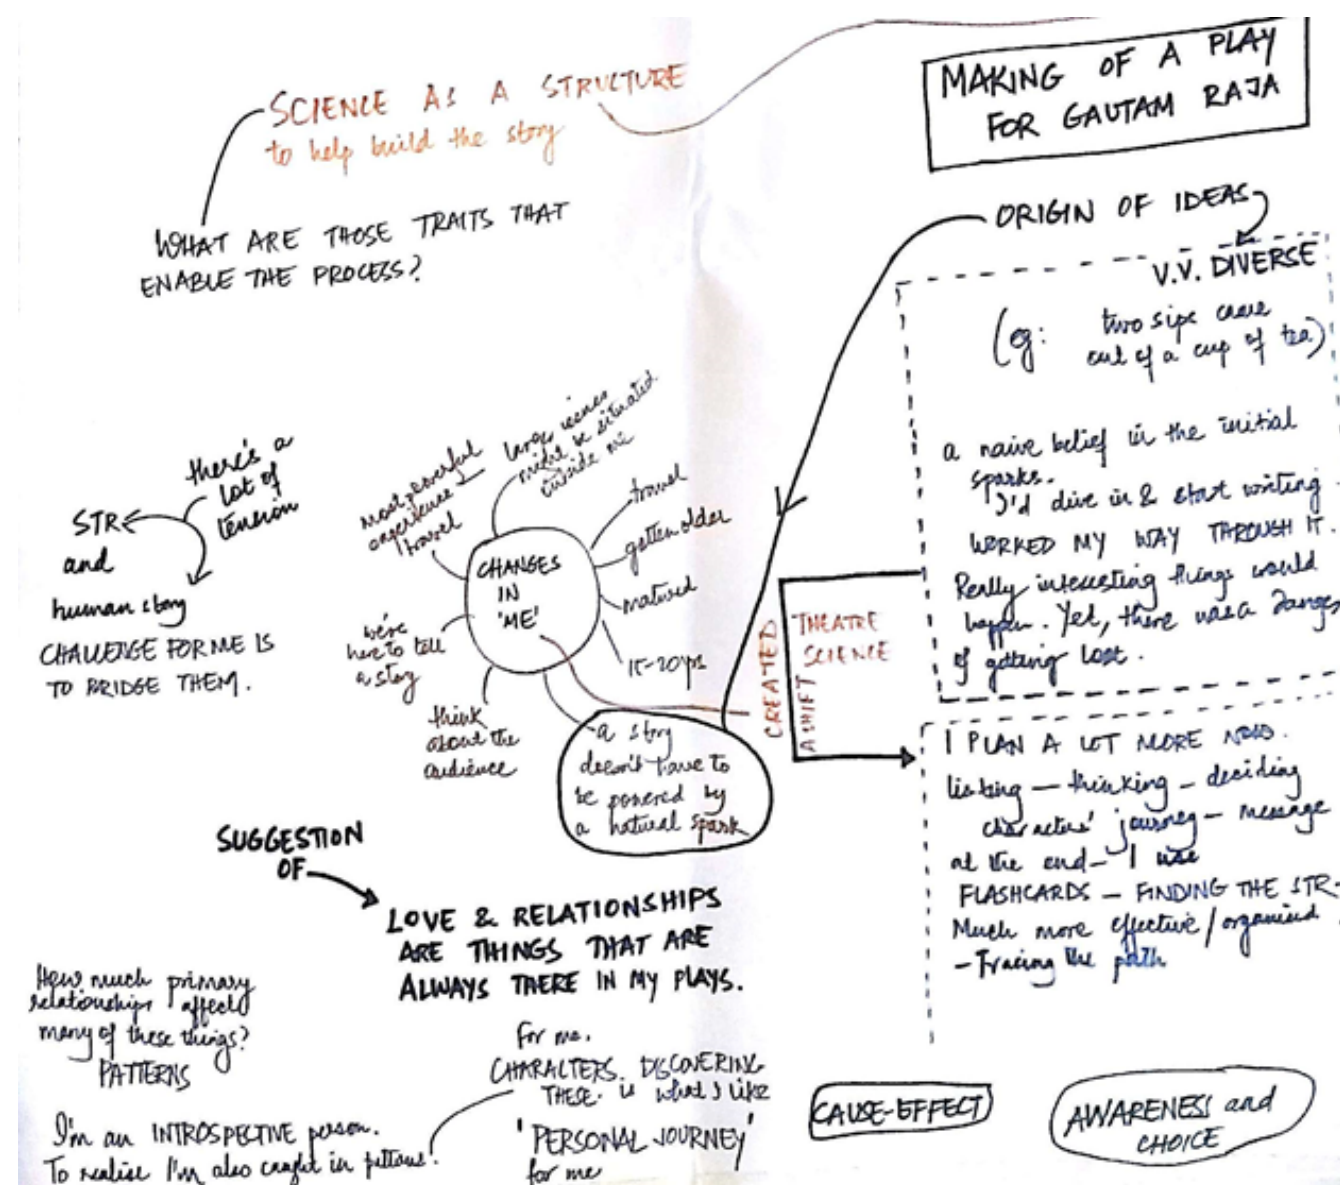 SCIENCE AS A STRUCTURE
to help build the story
WHAT ARE THOSE TRAITS THAT
ENABLE THE PROCESS?
MAKING OF A PLAY
FOR GAUTAM RAJA
ORIGIN OF IDEAS
V.V. DIVERSE
(eg: two sips
out of a cup of tea)
a naive belief in the initial
sparks.
I'd dive in & start writing.
WORKED MY WAY THROUGH IT.
Really interesting things would
happen. Yet, there was a danger
of getting lost.
I PLAN A LOT MORE NOW.
listing — thinking — deciding
characters' journey — message
at the end — I use
FLASHCARDS — FINDING THE STR-
Much more effective / organised
- Tracing the path
CREATED
A SHIFT
THEATRE
SCIENCE
there's a
lot of
tension
STR
and
human story
CHALLENGE FOR ME IS
TO BRIDGE THEM.
CHANGES
IN
'ME'
most powerful
experience
travel
larger issues
might be situated
outside me
travel
gotten older
matured
15-20yrs
we're
here to tell
a story
think
about the
audience
a story
doesn't have to
be powered by
a natural spark
SUGGESTION
OF
LOVE & RELATIONSHIPS
ARE THINGS THAT ARE
ALWAYS THERE IN MY PLAYS.
How much primary
relationships affect
many of these things?
PATTERNS
I'm an INTROSPECTIVE person.
To realise I'm also caught in patterns.
For me,
CHARACTERS DISCOVERING
THESE is what I like
'PERSONAL JOURNEY'
for me
CAUSE-EFFECT
AWARENESS and
CHOICE